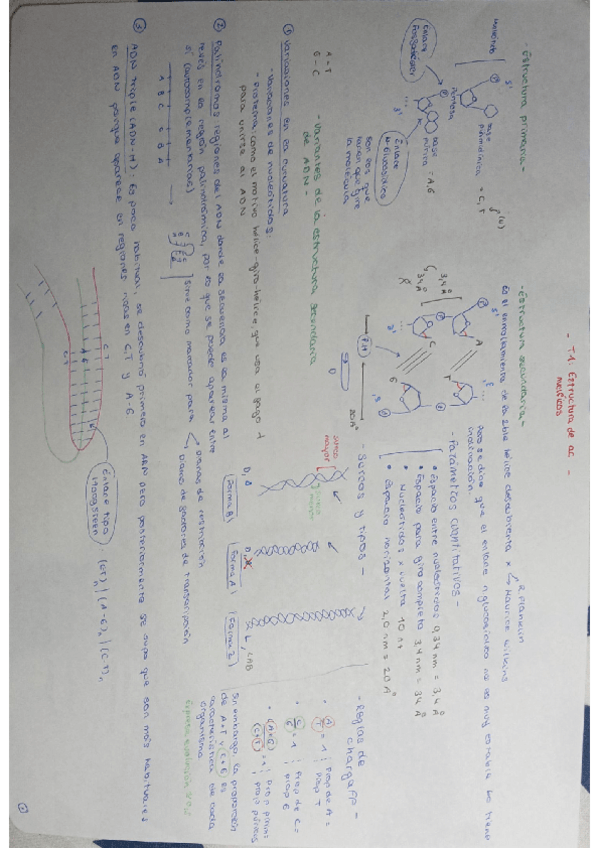 - T.1. Estructura de ac.
nucleicos -
- Estructura primaria -
nucleósido
5'
base
pirimidínica = C, T
(U)
Enlace
fosfodiéster
pentosa
base
púrica = A, G
3'
Enlace
n-glucosídico
son los que
hacen que gire
la molécula
A = T
G - C
- Estructura secundaria -
Es el enrollamiento de la doble hélice, descubierta x
R. Franklin
Maurice Wilkins
por lo que
inclinación.
5'
3,4 Å
34 Å
A
T
G
3'
5'
20 Å
- Parámetros cuantitativos -
• Espacio entre nucleótidos 0,34 nm = 3,4 Å
• Espacio para giro completo 3,4 nm = 34 Å
• Nucleótidos x vuelta 10 nt
• Espacio horizontal 2,0 nm = 20 Å
- Surcos y tipos -
surco
mayor
surco
menor
D, B
(Forma B)
(Forma A)
L
(Forma Z)
- Reglas de
Chargaff -
• A/T = 1 ; Prop de A =
Prop T
• C/G = 1 ; Prop de C =
Prop G
• (A+G)/(C+T) = 1 ; Prop purin =
Prop pirim
Sin embargo, la proporción
de A+T y C+G es
característica de cada
organismo
- Variantes de la estructura secundaria
de ADN -
① Variaciones en la curvatura
- Variaciones de nucleótidos.
- Proteína: como el motivo hélice-giro-hélice, que usa el fago λ
para unirse al ADN
② Palíndromos: regiones del ADN donde la secuencia es la misma al
revés en la región palindrómica, por lo que se puede aparear entre
sí (autocomplementarias)
A B C C B A
sirve como marcador para
Dianas de restricción
Dianas de factores de transcripción
③ ADN triple (ADN-H): Es poco habitual, se descubrió primero en ARN pero posteriormente se supo que son más habituales
en ADN porque aparece en regiones ricas en C.T y A-G
C-T
A-G
C-T
Enlace tipo
Hoogsteen
(CT)n | (A-G)n | (C-T)n
①